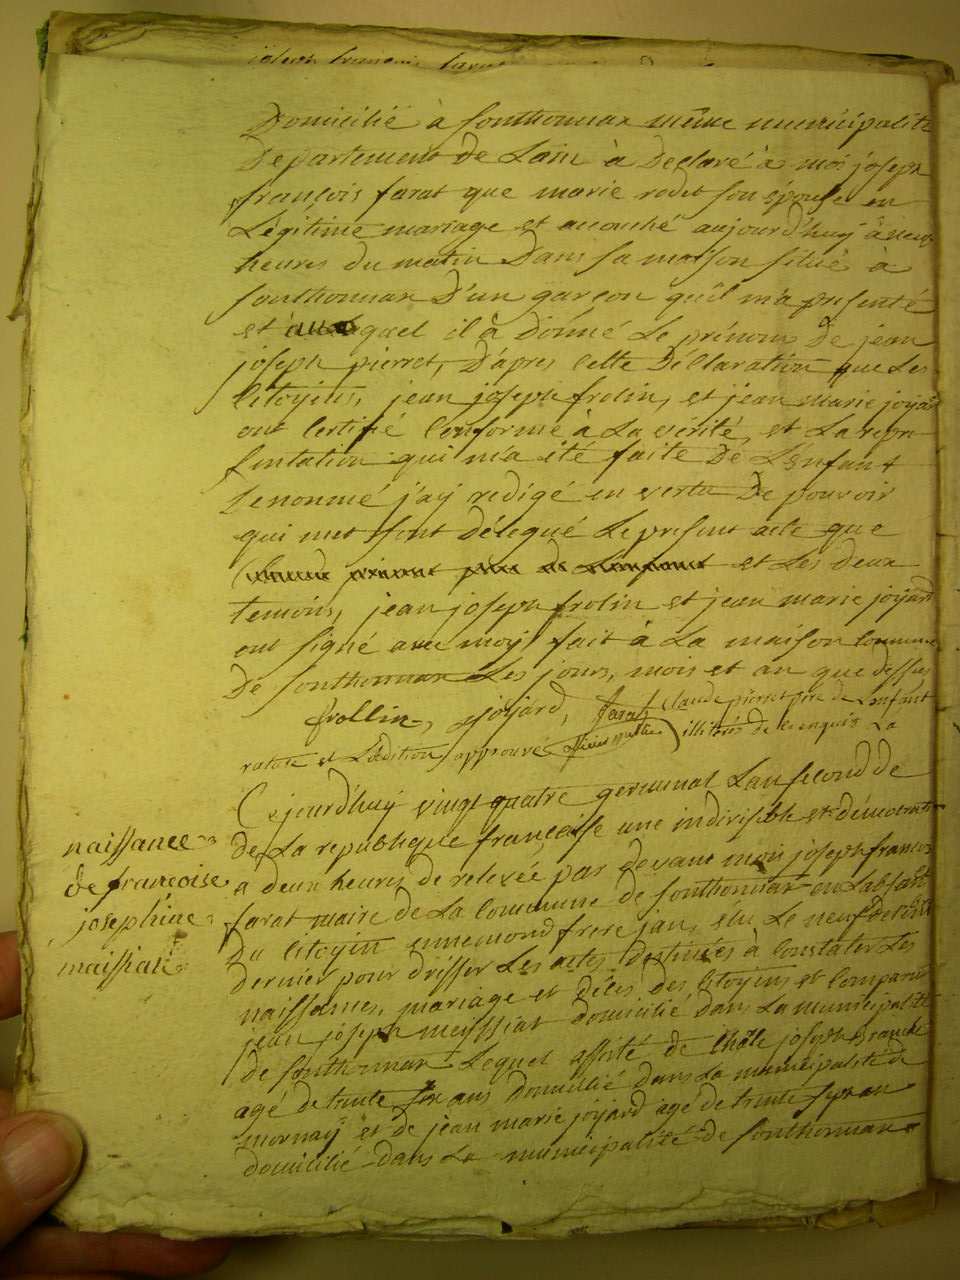 Domicilié à fonthonnax même municipalité
Departement de Lain à Declaré à moi joseph
françois farat que marie rodet son épouse en
Légitime mariage et accouché aujourd'huy à neuf
heures du matin Dans sa maison situé à
fonthonnax D'un garçon qu'il m'a presenté
et auquel il à donné Le prénom De jean
joseph pierret, D'apres Cette Déclaration que Les
Citoyens, jean joseph frolin, et jean marie joyard
ont Certifié Conforme à La verité, et La repre
sentation qui m'a été faite De L'enfant
Denommé j'ay redigé en vertu De pouvoir
qui me sont délegué Le present acte que
et Les deux
temoins, jean joseph frolin et jean marie joyard
ont signé avec moy fait à La maison Commune
De fonthonnax Les jours, mois et an que dessus
frollin, joyard, farat Claude pierret père de Lenfant
rature et L'adition approuvé illiterés de ce enquis La
Cejourd'huy vingt quatre germinal L'an second de
de La republique françaisse une indivisible et démocrati
a deux heures de relevée par devant moi joseph francois
farat maire de La Commune de fonthonnax en Labsant
Du Citoyen ennemond frere jan, élu Le neuf
dernier pour drésser Les actes destinées à Constater Les
naissances, mariage et décès des Citoyens et Comparu
jean joseph meyssiat domicilié dans La municipalité
de fonthonnax Lequel assité de joseph Branche
agé de trente six ans domicilié dans La municipalité de
mornay et de jean marie joyard agé de trente sept an
domicilié dans La municipalité de fonthonnax
naissance
de francoise
josephine
maissiat